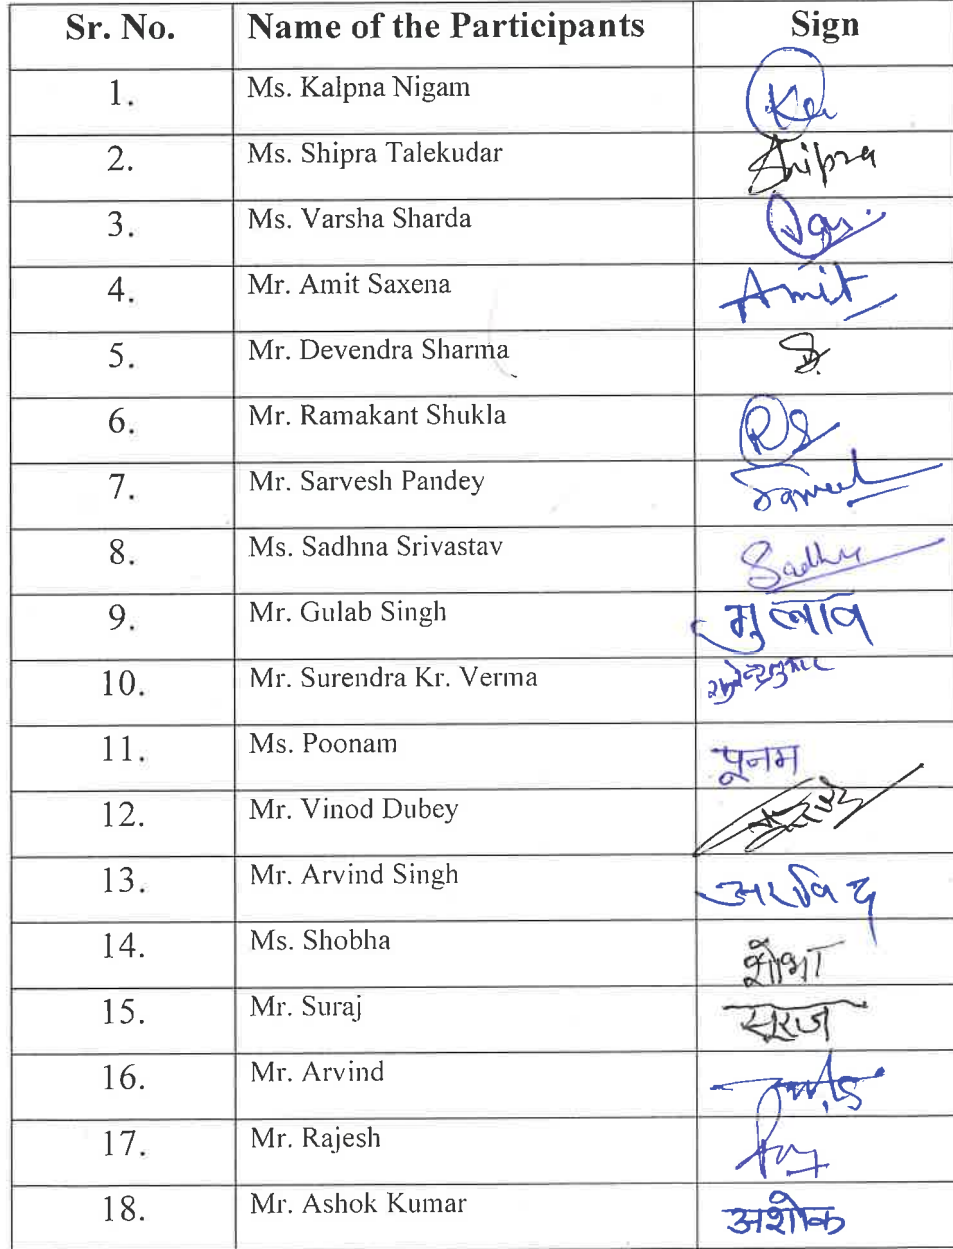 Sr. No. Name of the Participants Sign
1. Ms. Kalpna Nigam
2. Ms. Shipra Talekudar Shipra
3. Ms. Varsha Sharda
4. Mr. Amit Saxena Amit
5. Mr. Devendra Sharma
6. Mr. Ramakant Shukla RS
7. Mr. Sarvesh Pandey
8. Ms. Sadhna Srivastav
9. Mr. Gulab Singh गुलाब
10. Mr. Surendra Kr. Verma
11. Ms. Poonam पूनम
12. Mr. Vinod Dubey
13. Mr. Arvind Singh अरविंद
14. Ms. Shobha शोभा
15. Mr. Suraj सूरज
16. Mr. Arvind
17. Mr. Rajesh
18. Mr. Ashok Kumar अशोक